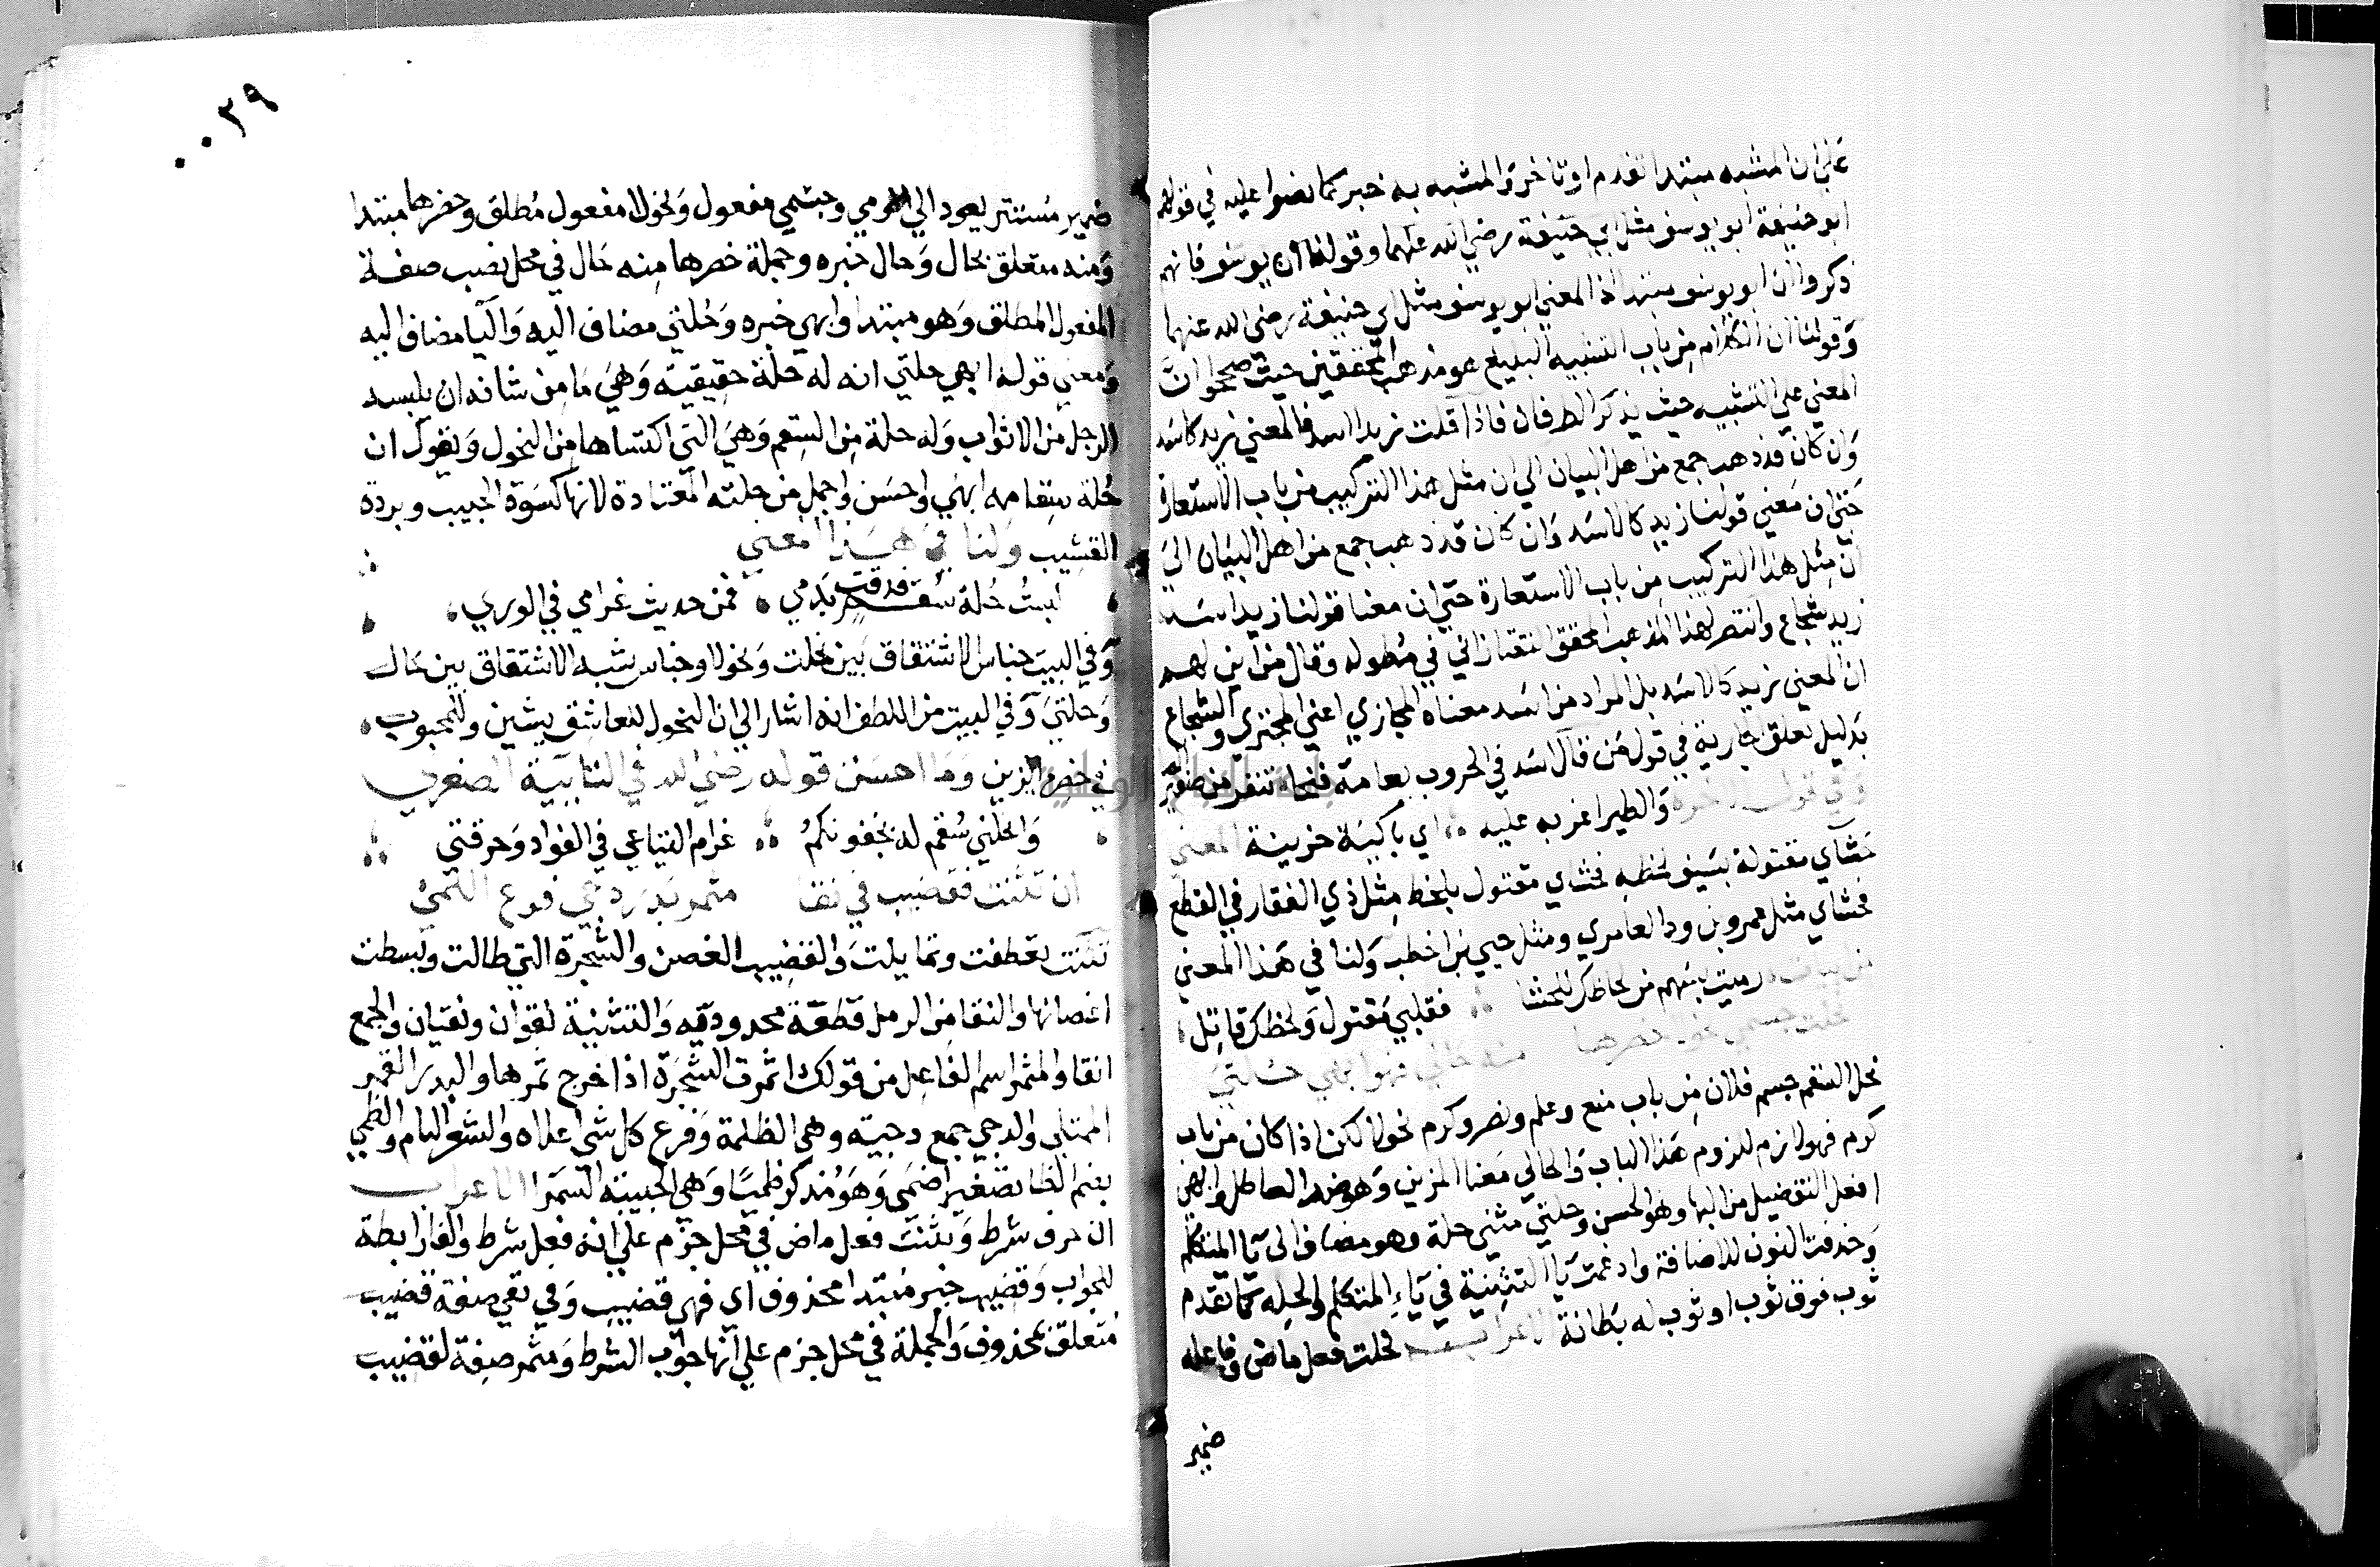 علي ان المشبه مبتدا تقدم او تاخر والمشبه به خبر كما نصوا عليه في قولهم
ابو حنيفة ابو يوسف مثل ابي حنيفة رضي الله عنهما وقولنا ابو يوسف فانهم
ذكروا ان ابو يوسف مبتدا اذ المعني ابو يوسف مثل ابي حنيفة رضي الله عنهما
وقولنا ان الكلام من باب التشبيه البليغ هو مذهب المحققين حيث صححوا ان
المعني علي التشبيه حيث يذكر الطرفان فاذا قلت زيد اسد فالمعني زيد كاسد
وان كان قد ذهب جمع من اهل البيان الي ان مثل هذا التركيب من باب الاستعارة
حتي ان معني قولنا زيد كالاسد وان كان قد ذهب جمع من اهل البيان الي
ان مثل هذا التركيب من باب الاستعارة حتي ان معنا قولنا زيد اسد
زيد شجاع وانتصر لهذا المذهب المحقق التفتازاني في مطوله وقال من اين لهم
ان المعني زيد كالاسد بل المراد من اسد معناه المجازي اعني المجتري والشجاع
بدليل تعلق الجار به في قول من قال اسد في الحروب نعامة فتخاء تنفر من صفير
وفي قول والطير اغربه عليه اي باكية حزينة المعني
حشاي مقتولة بسيف لحظه فحشاي مقتول بلحظ مثل ذي الفقار في القطع
فحشاي مثل عمرو بن ود العامري ومثل حيي بن اخطب ولنا في هذا المعني
رميت بسهم من لحاظك للحشا فقلبي مقتول ولحظك قاتل
نحلت جسمي نحولا خصرها منه حالي فهو ابهي حلتي
نحل السقم جسم فلان من باب منع وعلم ونصر وكرم نحولا لكن اذا كان من باب
كرم فهو لازم للزوم هذا الباب والحالي معنا المزين وهو ضد العاطل وابهي
افعل التفضيل من البها وهو الحسن وحلتي مثني حلة وهو مضاف الي يا المتكلم
وحذفت النون للاضافة وادغمت يا التثنية في ياء المتكلم والحله كما تقدم
ثوب فوق ثوب او ثوب له بطانة الاعراب نحلت فعل ماض وفاعله
ضمير
٠٠٣٩
ضمير مستتر يعود الي وجسمي مفعول ونحولا مفعول مطلق وخصرها مبتدا
ومنه متعلق بحال وحال خبره وجملة خصرها منه حال في محل نصب صفة
المفعول المطلق وهو مبتدا وابهي خبره وحلتي مضاف اليه واليا مضاف اليه
ومعني قوله ابهي حلتي انه له حلة حقيقية وهي ما من شانه ان يلبسه
الرجل من الاثواب وله حلة من السقم وهي التي اكتساها من النحول ويقول ان
حلة سقامه ابهي واحسن واجمل من حلته المعتادة لانها كسوة الحبيب وبردة
القشيب ولنا في هذا المعني
لبست حلة سقم قد رقمت بدمي فمن حديث غرامي في الوري
وفي البيت جناس الاشتقاق بين نحلت ونحولا وجناس شبه الاشتقاق بين حال
وحلتي وفي البيت من اللطف انه اشار الي ان النحول للعاشق يشين وللمحبوب
في خصره يزين وما احسن قوله رضي الله في التايية الصغري
وانحلني سقم له بجفونكم غرام التياعي في الفواد وحرقتي
ان تثنت فقضيب في نقا مثمر بدر دجي فرع الظمي
تثنت تعطفت وتمايلت والقضيب الغصن والشجرة التي طالت وبسطت
اغصانها والنقا من الرمل قطعة محدودقه والتثنية نقوان ونقيان والجمع
انقا والمثمر اسم الفاعل من قولك اثمرت الشجرة اذا خرج ثمرها والبدر القمر
الممتلي والدجي جمع دجيته وهي الظلمة وفرع كل شي اعلاه والشعر التام والظمي
بضم الظا تصغير اضمي وهو مذكر ظميا وهي الحبيبة السمرا الاعراب
ان حرف شرط وتثنت فعل ماض في محل جزم علي انه فعل شرط والفا رابطة
للجواب وقضيب خبر مبتدا محذوف اي فهي قضيب وفي نقي صفة قضيب
متعلق بمحذوف والجملة في محل جزم علي انها جواب الشرط ومثمر صفة لقضيب